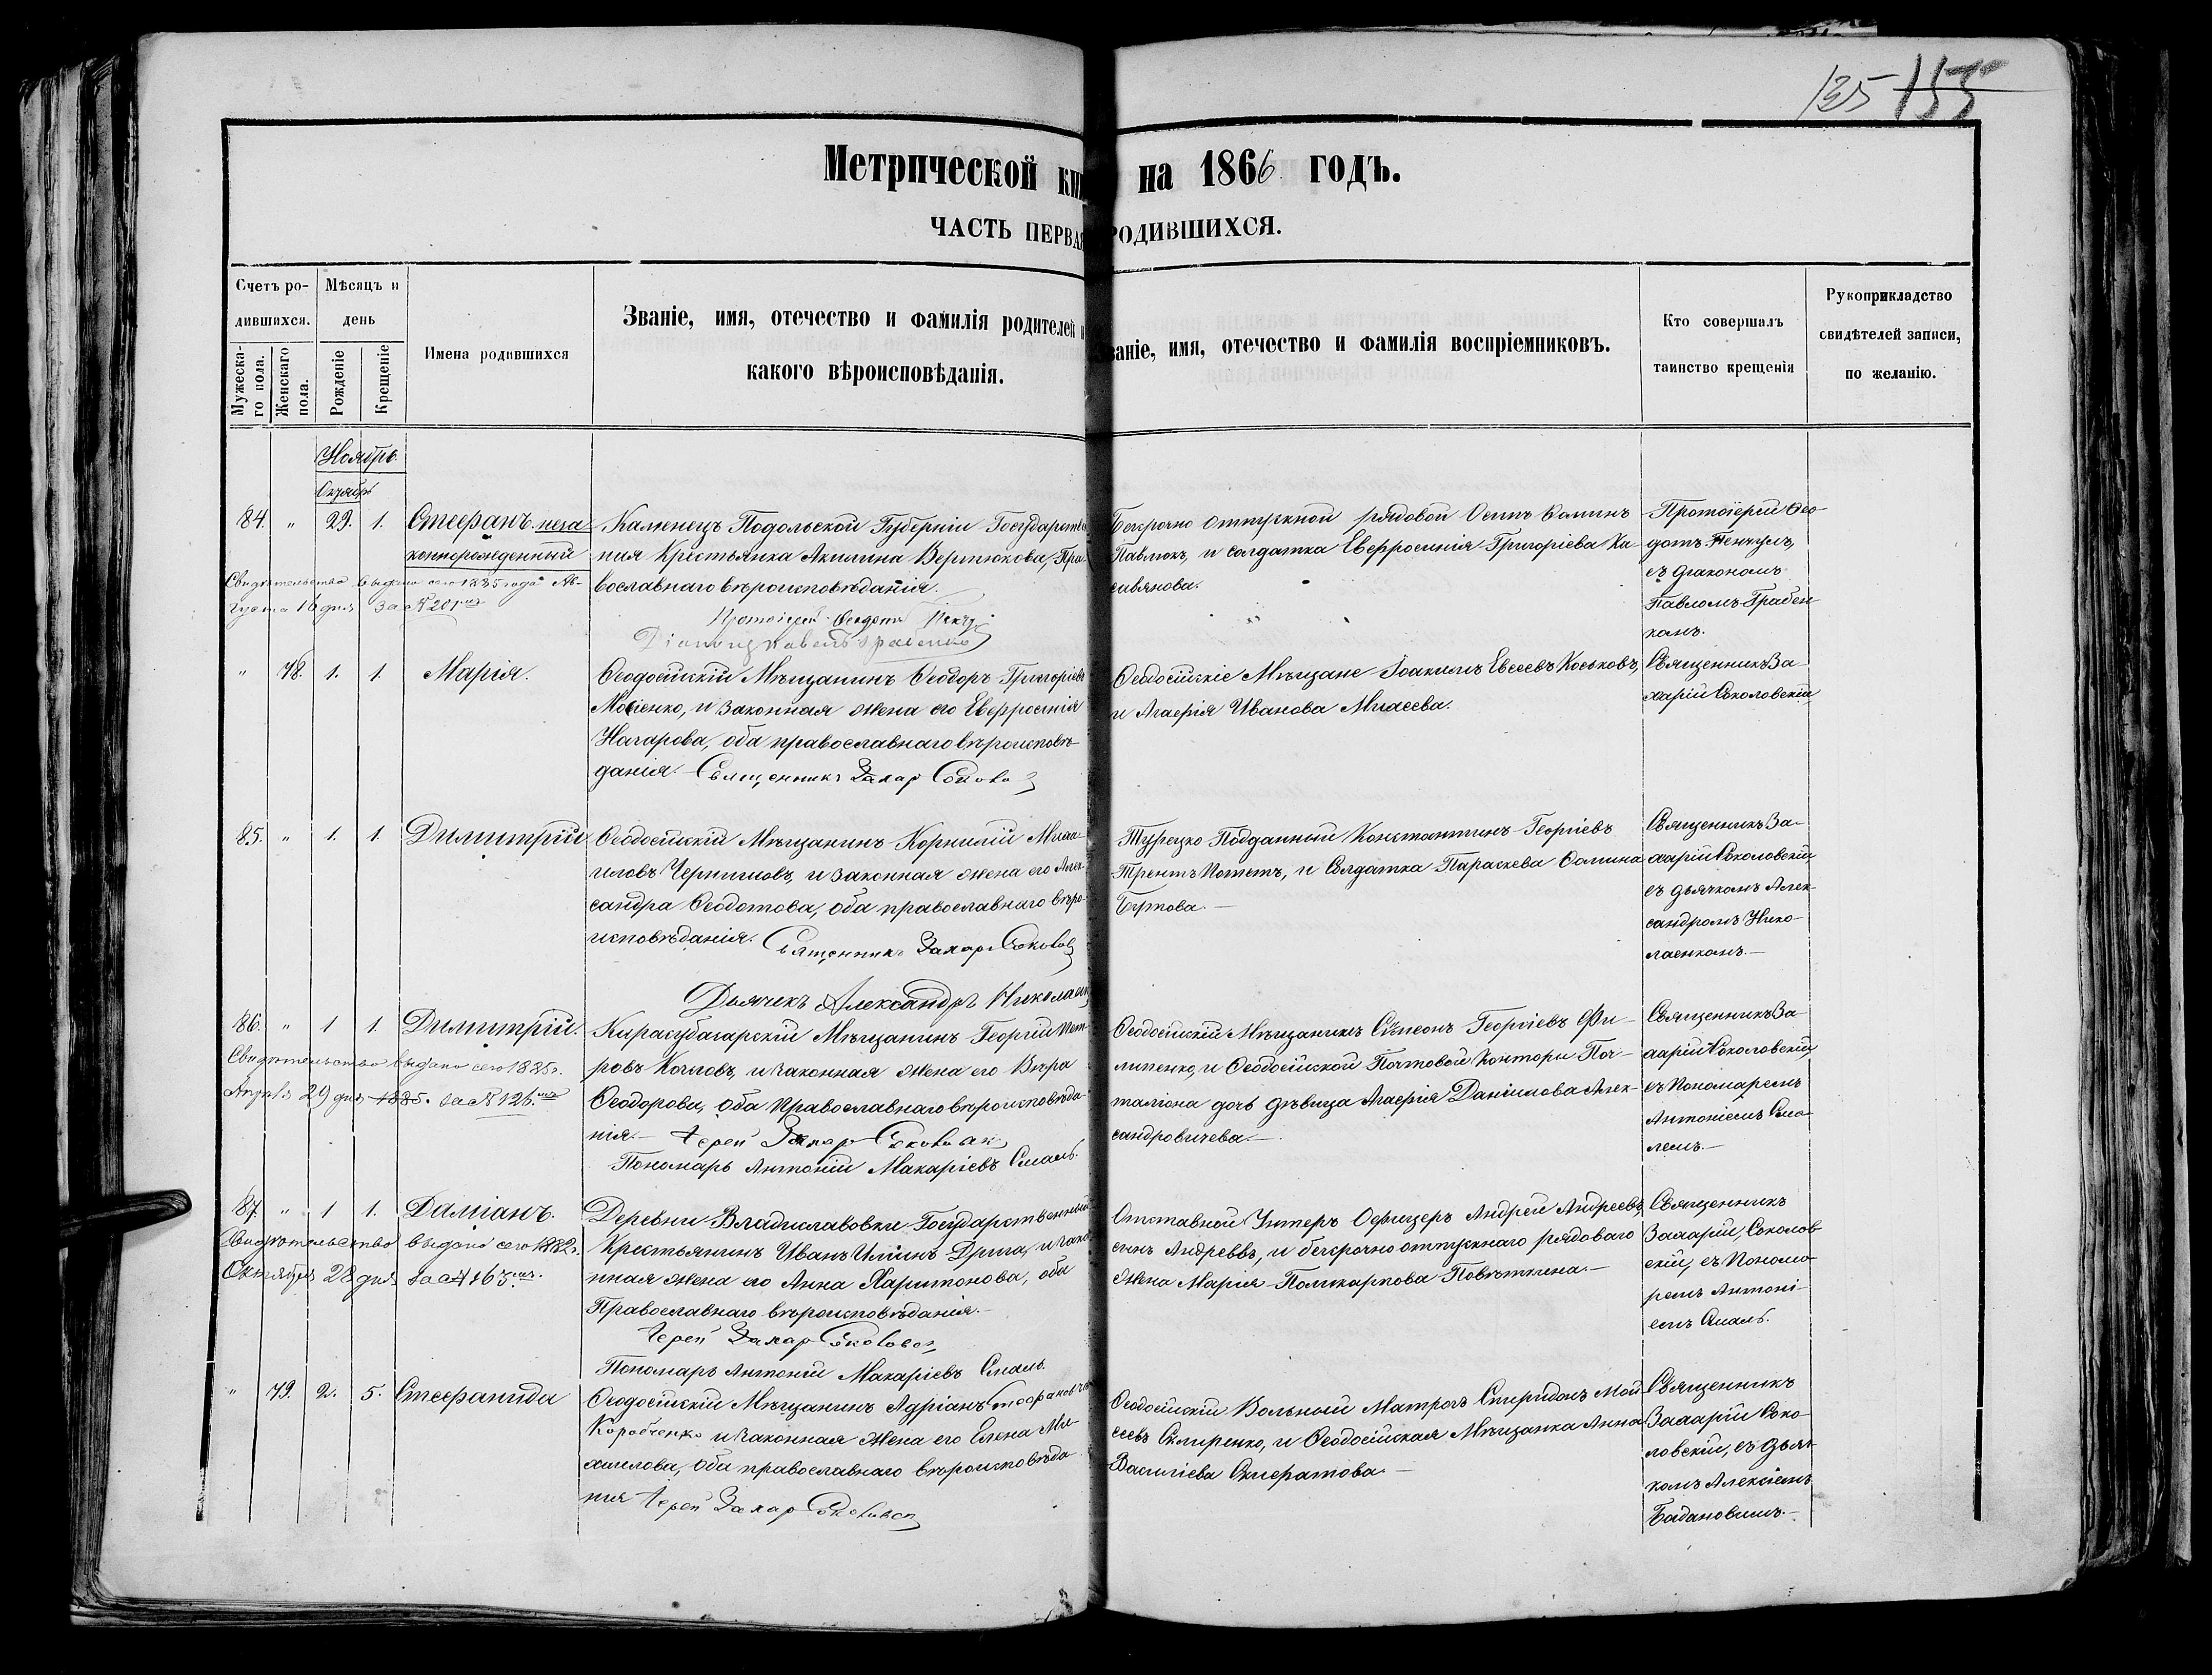 135 155
Метрической кни на 1866 годъ.
ЧАСТЬ ПЕРВАЯ РОДИВШИХСЯ.
Счетъ ро-
дившихся.
Мѣсяцъ и
день
Мужеска-
го пола.
Женскаго
пола.
Рожденіе
Крещеніе
Имена родившихся
Званіе, имя, отечество и фамилія родителей и
какого вѣроисповѣданія.
ваніе, имя, отечество и фамилія воспріемниковъ.
Кто совершалъ
таинство крещенія
Рукоприкладство
свидѣтелей записи,
по желанію.
Ноябрь.
Октябрь
84. " 29. 1. Стефанъ. неза
коннорожденный
Свидѣтельство выдано сего 1885 года Ав-
густа 16 дня за № 201
Каменецъ Подольской Губерніи Государстве
ная Крестьянка Акилина Вертюкова, Пра-
вославнаго вѣроисповѣданія.
Протоіерей Ѳеодотъ
Безсрочно отпускной рядовой Осипъ Ѳоминъ
Павлюкъ, и солдатка Евфросинія Григоріева Ка-
сивянова.
Протоіерей Ѳео-
дотъ Пенчулъ,
съ діакономъ
Павломъ Грабен-
комъ.
" 78. 1. 1. Марія.
Ѳеодосійскій Мѣщанинъ Ѳеодоръ Григоріевъ
Мосіенко, и законная жена его Евфросинія
Назарова, оба православнаго вѣроисповѣ-
данія. Священникъ Захар
Ѳеодосійскіе Мѣщане Іоакимъ Евсеевъ Коськовъ,
и Агафія Иванова Мисаева.
Священникъ За-
харій Соколовскій
85. " 1. 1. Димитрій
Ѳеодосійскій Мѣщанинъ Корнилій Миха-
иловъ Черниговъ, и законная жена его Алек-
сандра Ѳеодотова, оба православнаго вѣро-
исповѣданія. Священникъ Захар
Дьячекъ Александръ Николаен
Турецко Подданный Константинъ Георгіевъ
и Солдатка Параскева Ѳомина
Буртова.
Священникъ За-
харій Соколовскій
съ дьячкомъ Алек-
сандромъ Нико-
лаенкомъ.
86. " 1 1. Димитрій.
Свидѣтельство выдано сего 1885 г.
Апрѣля 29 дня 1885. за № 126.
Карасубазарскій Мѣщанинъ Георгій Пет-
ровъ Козловъ, и законная жена его Вѣра
Ѳеодорова, оба Православнаго вѣроисповѣда-
нія. Іерей Захар
Пономарь Антоній Макаріевъ Смаль.
Ѳеодосійскій Мѣщанинъ Сѵмеонъ Георгіевъ Фи-
липенко, и Ѳеодосійской Почтовой Конторы Поч-
таліона дочь дѣвица Агафія Даніилова Алек-
сандровичева.
Священникъ За-
харій Соколовскій
съ Пономаремъ
Антоніемъ Сма-
лемъ.
87. " 1 1. Даміанъ.
Свидѣтельство выдано сего 1882 г.
Октября 28 дня за № 163.
Деревни Владиславовки Государственный
Крестьянинъ Иванъ Ильинъ Дрига, и зако
нная жена его Анна Харитонова, оба
Православнаго вѣроисповѣданія.
Іерей Захар
Пономарь Антоній Макаріевъ Смаль.
Отставной Унтеръ Офицеръ Андрей Андреевъ
сынъ Андреевъ, и безсрочно отпускнаго рядоваго
жена Марія Поликарпова Повѣткина.
Священникъ
Захарій, Соколов-
скій, съ Понома-
ремъ Антоні-
емъ Смаль.
" 79. 2. 5. Стефанида
Ѳеодосійскій Мѣщанинъ Адріанъ Стефановъ
Коробченко и законная жена его Елена Ми-
хаилова, оба православнаго вѣроисповѣда-
нія Іерей Захар
Ѳеодосійскій Вольный Матросъ Спиридонъ Мои-
сеевъ Скляренко, и Ѳеодосійская Мѣщанка Анна
Василіева
Священникъ
Захарій Соко-
ловскій, съ дьяч-
комъ Алексіемъ
Бадановымъ.